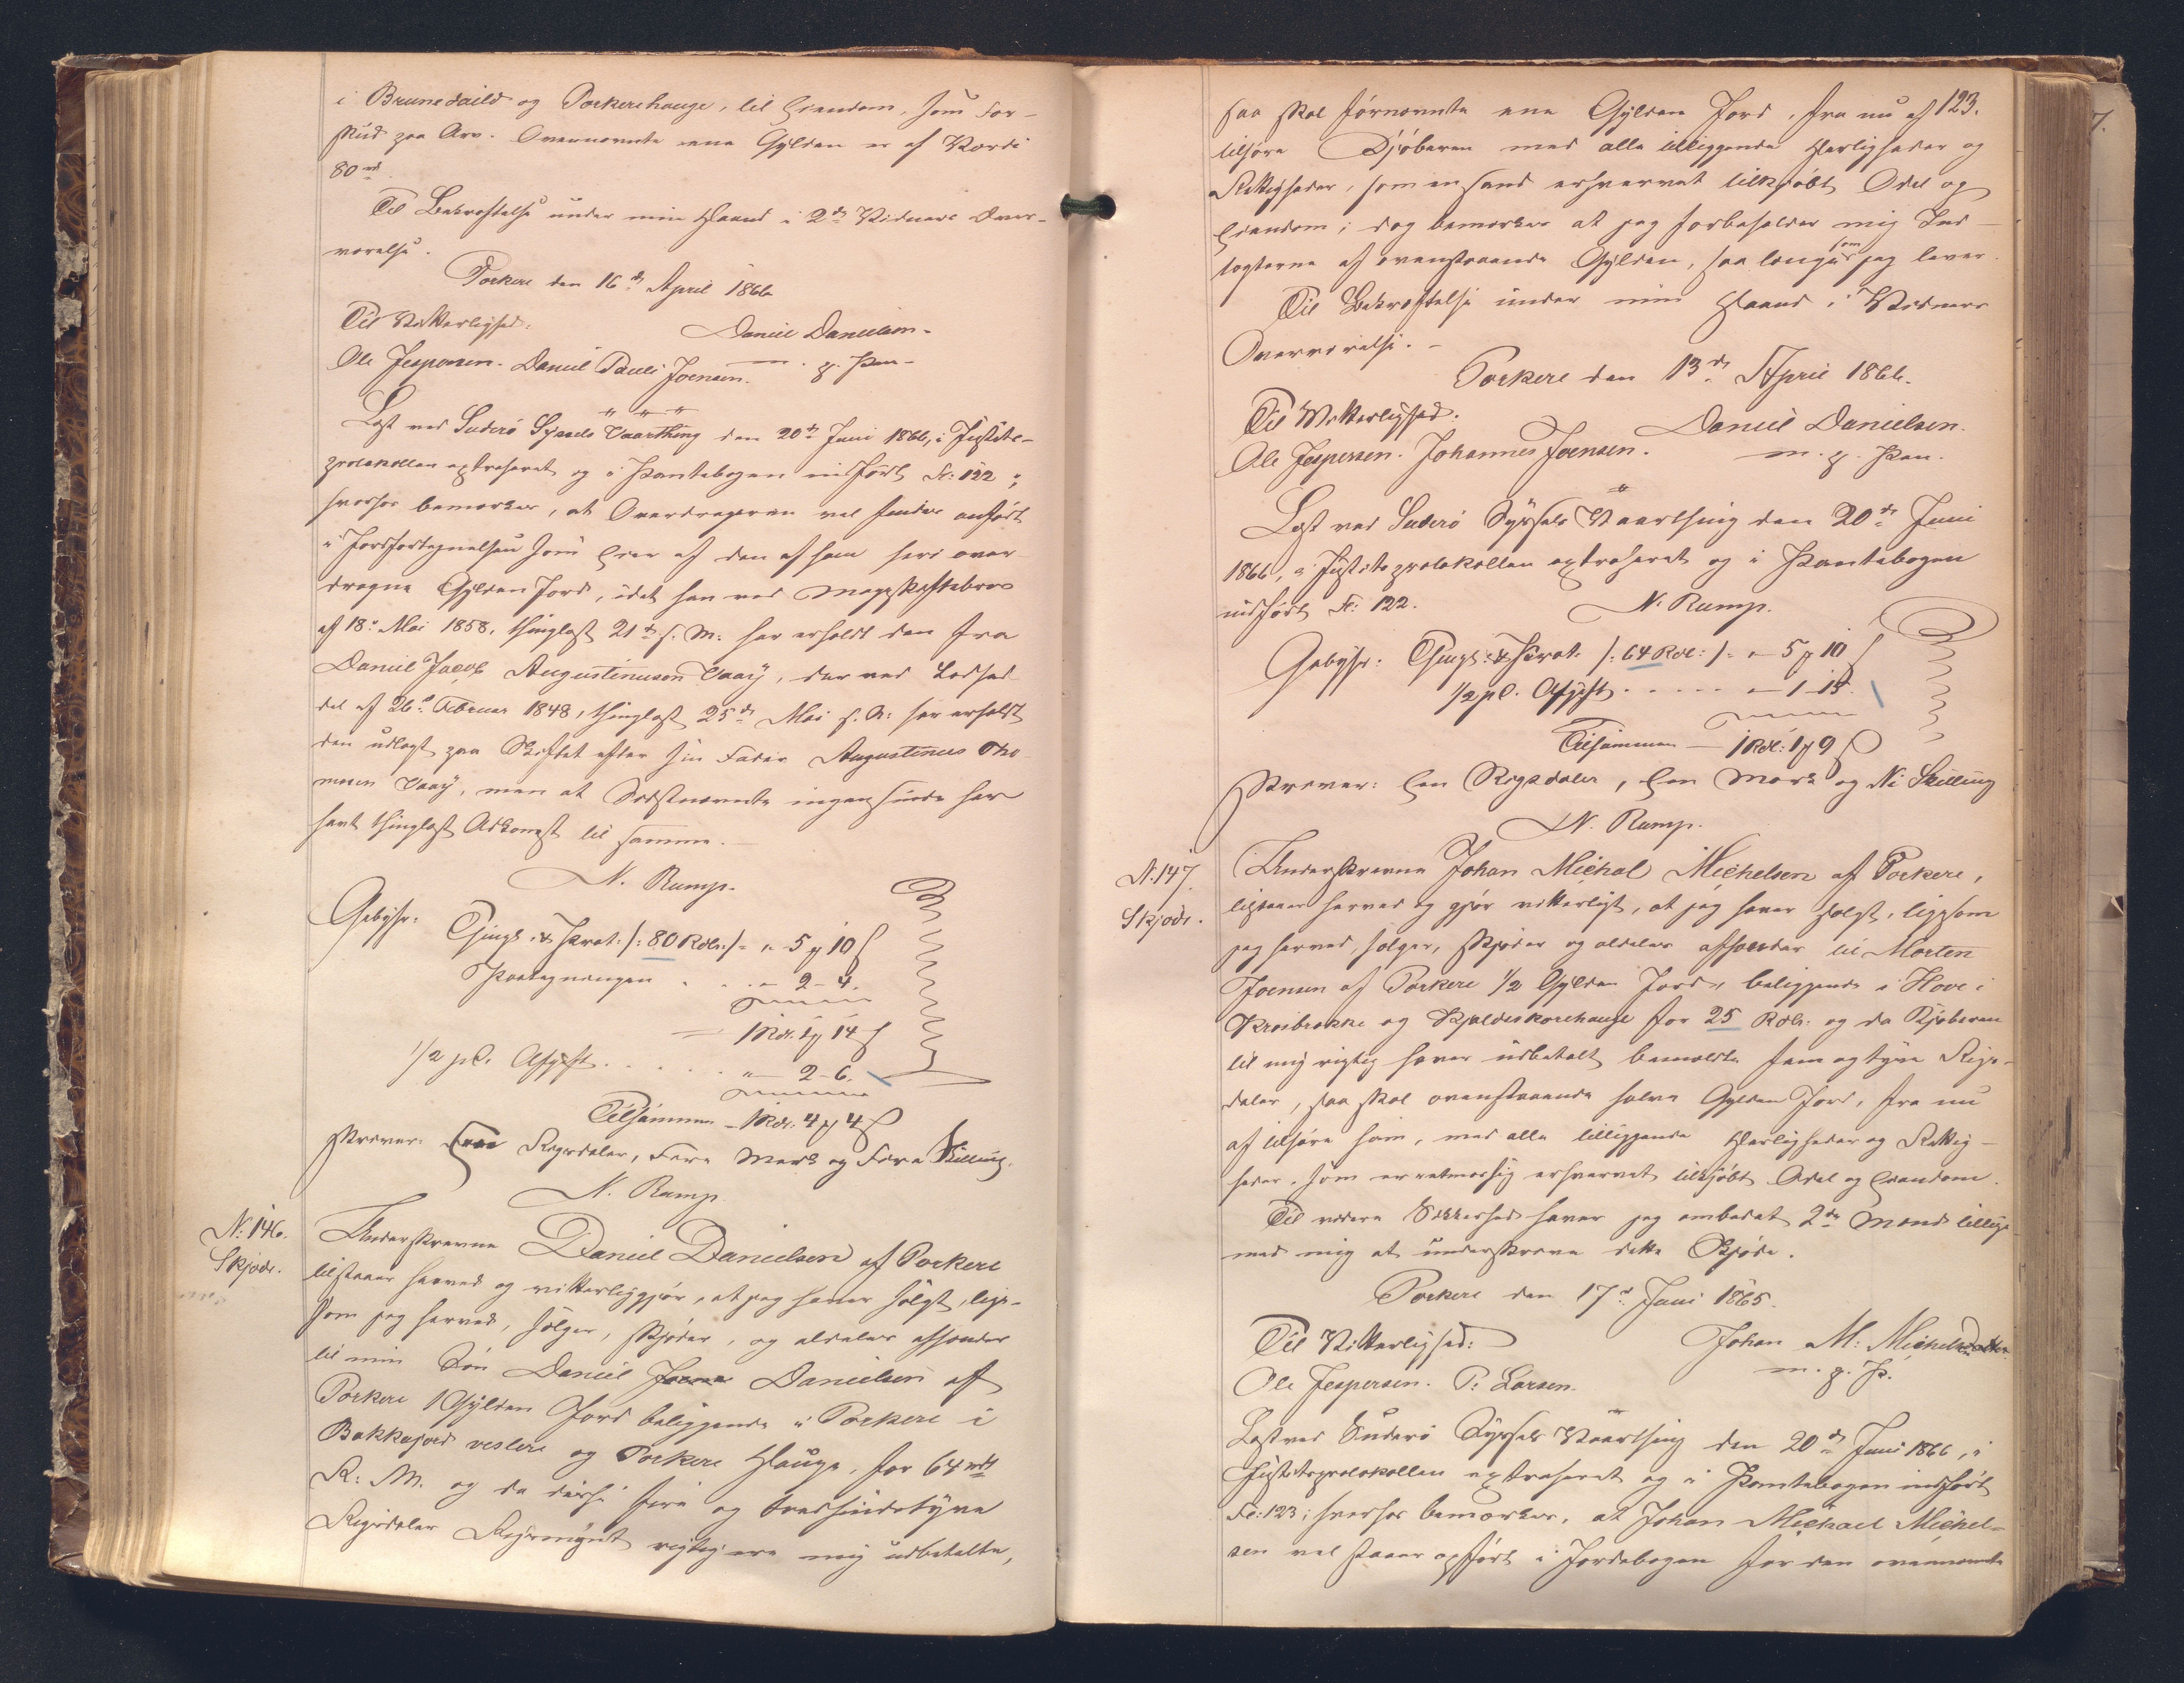 i Brunedaild og Porkerehauge, til Eiendom, som For-
skud paa Arv. Ovennævnte ene Gylden er af Værdi
80 rd
Til Bekræftelse under min Haand i 2de Vidners Over-
værelse.
Porkere den 16de April 1866
Til Vitterlighed: Daniel Danielsen
Ole Jespersen. Daniel Pauli Joensen. m. f. Pen
Læst ved Suderø Syssels Vaarthing den 20de Juni 1866, i Justits-
protokollen extraheret og i Pantebogen indført Fo: 122;
hvorhos bemærkes, at Overdrageren vel findes anført
i Jordfortegnelsen som Eier af den af ham her over-
dragne Gylden Jord, idet han ved Mageskiftebrev
af 18de Mai 1858, thinglæst 21de s. M. har erholdt den fra
Daniel Jacob Augustinusen Vaay, der ved Lodsed-
del af 26de Februar 1848, thinglæst 25de Mai s. A. har erholdt
den udlagt paa Skiftet efter sin Fader Augustinus Tho-
mesen Vaay, men at Sidstnævnte ingensinde har
havt thinglæst Adkomst til samme.
N. Rump.
Gebyhr: Thingl. & Skrat. /: 80 Rdlr :/ = " - 5 ╱ 10 ß
Paategningen . . . " 2 - 4.
1 Rdr. 2 ╱ 14 ß
1/2 pC. Afgift . . . . . " 2 - 6.
Tilsammen - 1 Rdr. 4 ╱ 4 ß
skriver: Een Rigsdaler, Fire Mark og Fire Skilling.
N. Rump.
N: 146.
Skjøde.
Underskrevne Daniel Danielsen af Porkere
tilstaaer herved og vitterliggjør, at jeg haver solgt, lige-
som jeg herved, sælger, skjøder, og aldeles afhænder
til min Søn Daniel Danielsen af
Porkere 1 Gylden Jord beliggende i Porkere i
Bakkajord vestere og Porkere Hauge, for 64 rdl
R: M. og da disse fire og tredsindstyve
Rigsdaler Rigsmynt rigtig ere mig udbetalte,
123.
saa skal førnævnte ene Gylden Jord, fra nu af
tilhøre Kjøberen med alle tilliggende Herligheder og
Rettigheder, som en sand erhvervet tilkjøbt Odel og
Eiendom; dog bemærkes at jeg forbeholder mig Ind-
tægterne af ovenstaaende Gylden, saa længe som jeg lever.
Til Bekræftelse under min Haand i Vidners
Overværelse. -
Porkere den 13de April 1866.
Til Vitterlighed: Daniel Danielsen.
Ole Jespersen. Johannes Joensen. m. f. Pen.
Læst ved Suderø Syssels Vaarthing den 20de Juni
1866, i Justitsprotokollen extraheret og i Pantebogen
indført Fo: 122. N. Rump.
Gebyhr: Thingl. & Skrat. /: 64 Rdl: /: " - 5 ╱ 10 ß
1/2 pC. Afgift . . . . . " - 1 - 15.
Tilsammen - 1 Rdl: 1 ╱ 9 ß
skriver: Een Rigsdaler, Een Mark og Ni Skilling
N. Rump.
N. 147.
Skjøde.
Underskrevne Johan Michal Michelsen af Porkere,
tilstaaer herved og gjør vitterligt, at jeg haver solgt, ligesom
jeg herved, sælger, skjøder og aldeles afhænder til Morten
Joensen af Porkere 1/2 Gylden Jord, beliggende i Hove i
Kroibrekke og Kjaldeskorehauge for 25 Rdlr. og da Kjøberen
til mig rigtig haver udbetalt bemeldte fem og tyve Rigs-
daler, saa skal ovenstaaende halve Gylden Jord, fra nu
af tilhøre ham, med alle tilliggende Herligheder og Rettig-
heder, som en retmæssig erhvervet tilkjøbt Odel og Eiendom.
Til videre Sikkerhed haver jeg ombedet 2de Mænd tillige
med mig at underskrive dette Skjøde.
Porkere den 17de Juni 1865.
Til Vitterlighed: Johan M: Michelsen
Ole Jespersen. P. Larsen. m. f. P.
Læst ved Suderø Syssels Vaarthing den 20de Juni 1866, i
Justitsprotokollen extraheret og i Pantebogen indført
Fo: 123; hvorhos bemærkes, at Johan Michael Michel-
sen vel staaer opført i Jordebogen for den ovennævnte